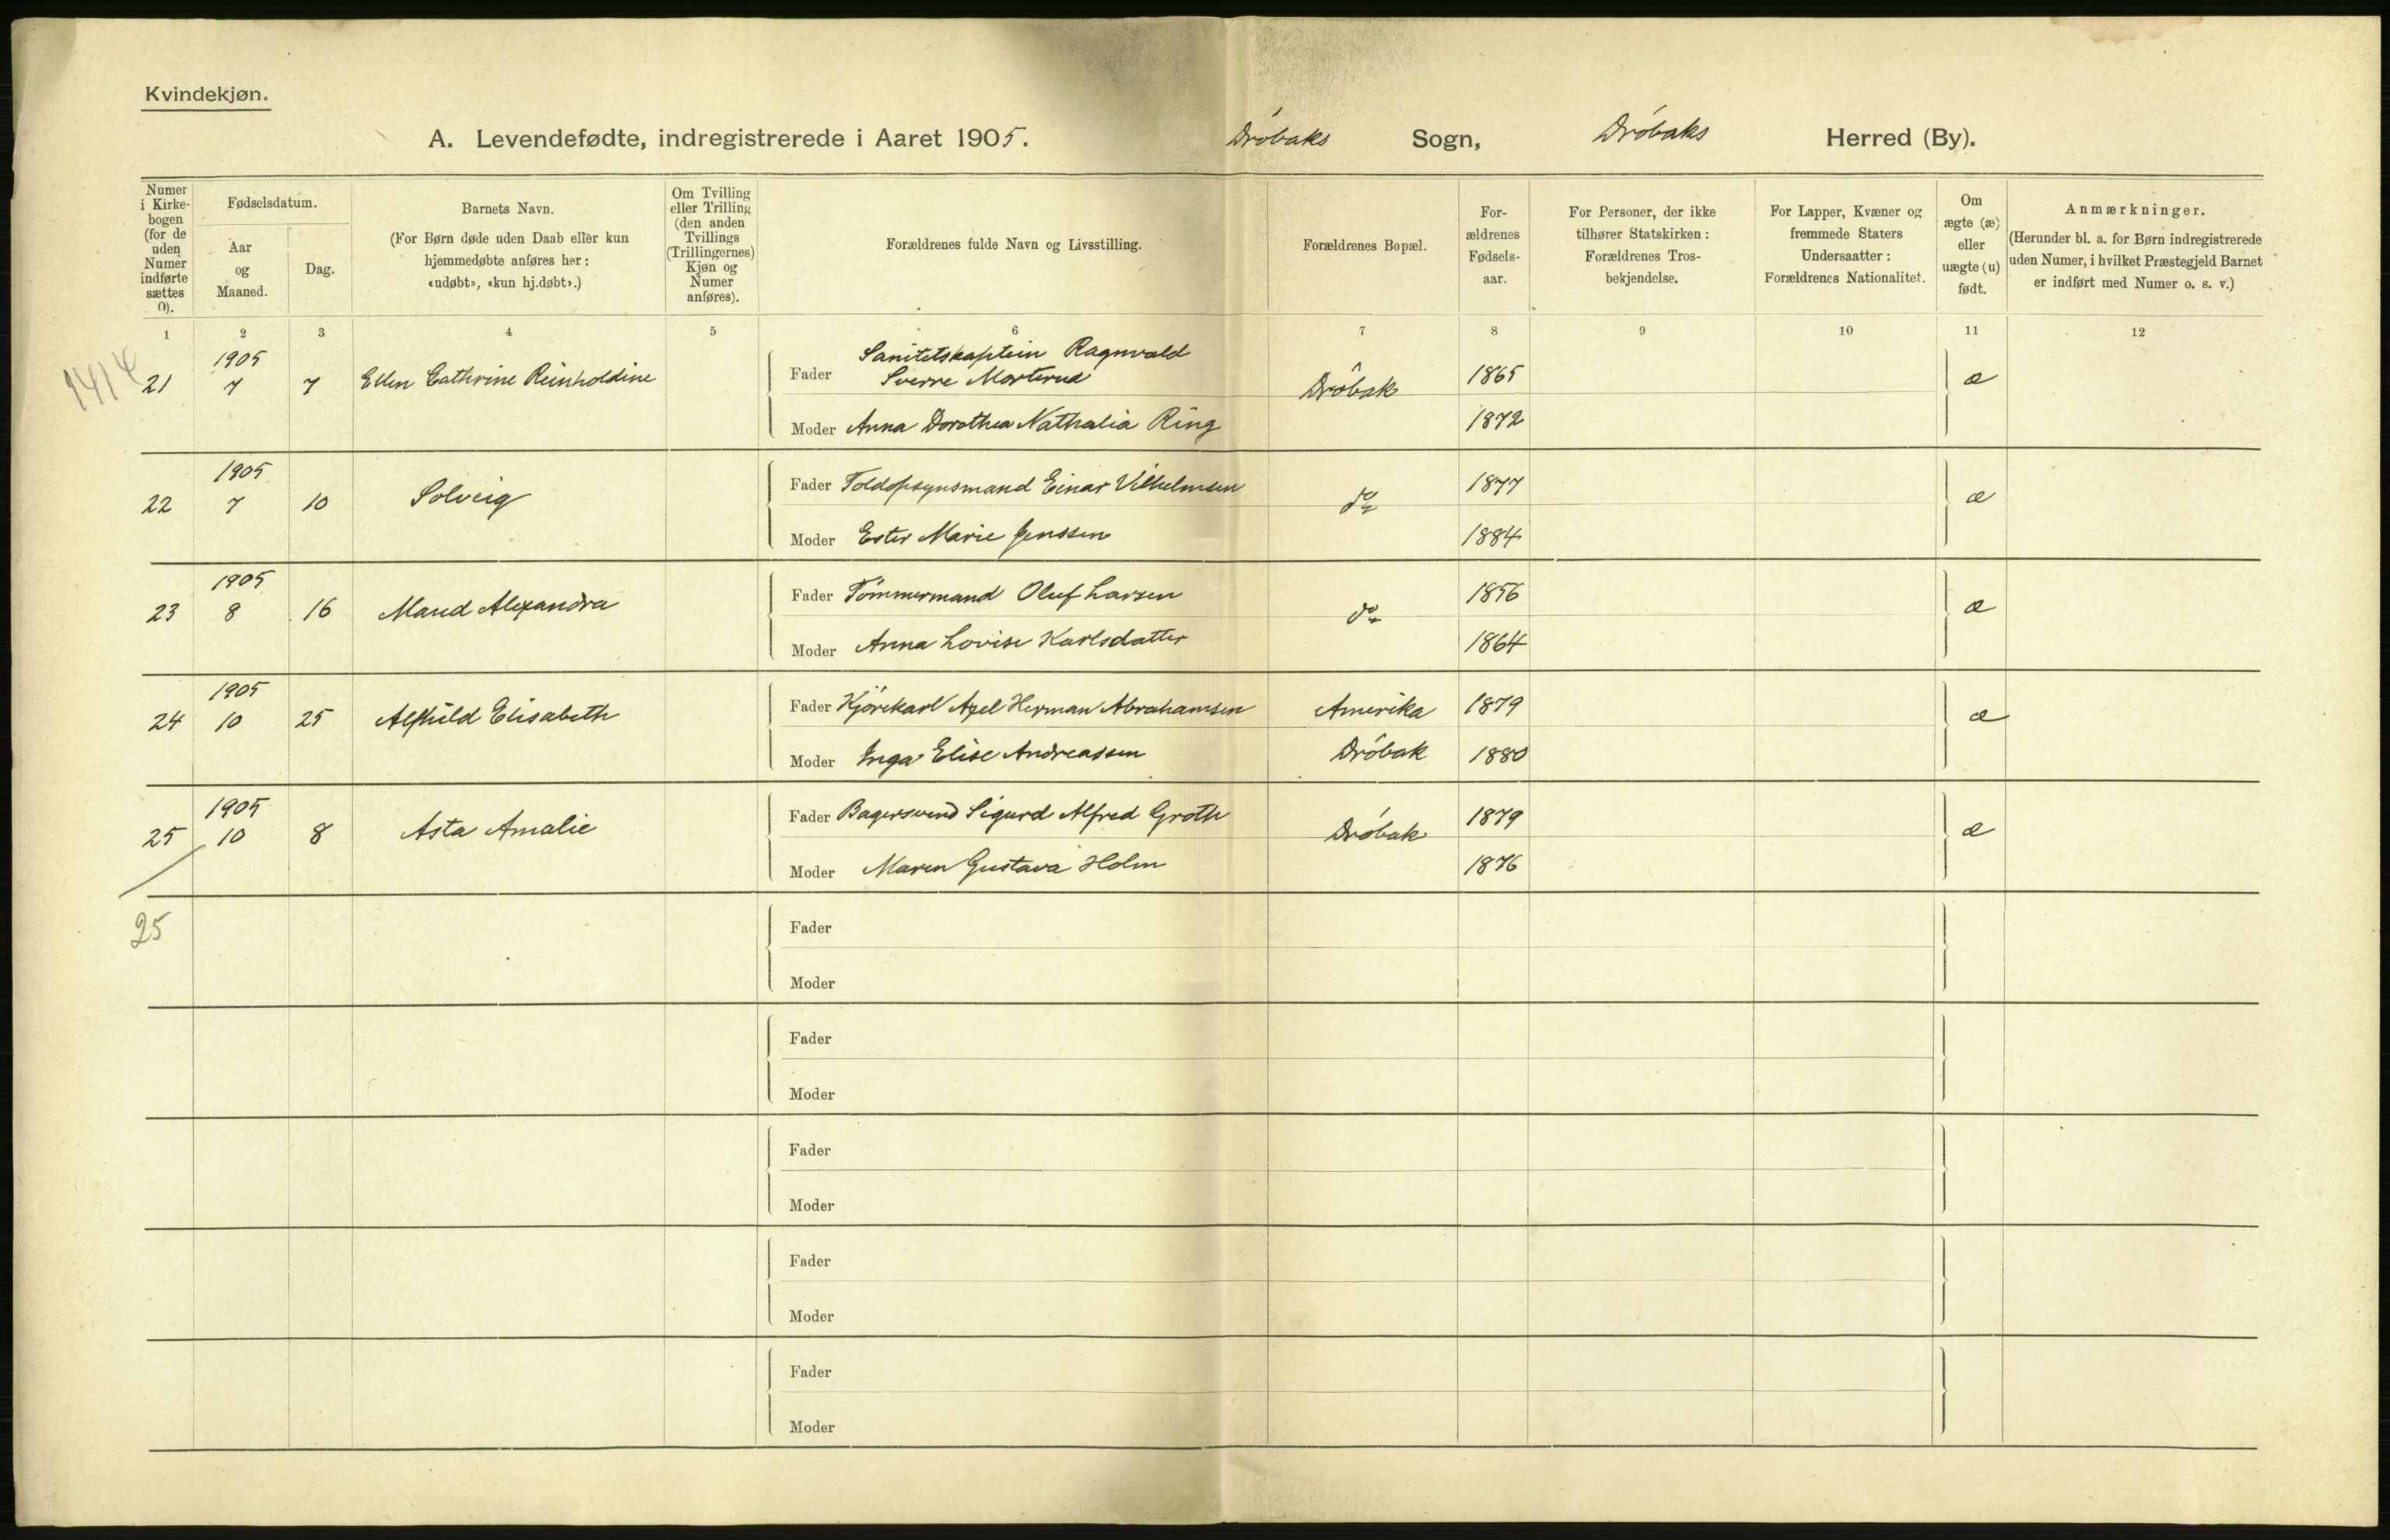 Kvindekjøn.
A. Levendefødte, indregistrerede i Aaret 1905. Drøbaks Sogn, Drøbaks Herred (By).
Numer i Kirkebogen (for de uden Numer indførte sættes 0).
Fødselsdatum.
Aar og Maaned.
Dag.
Barnets Navn.
(For Børn døde uden Daab eller kun hjemmedøbte anføres her: «udøbt», «kun hj.døbt».)
Om Tvilling eller Trilling (den anden Tvillings (Trillingernes) Kjøn og Numer anføres).
Forældrenes fulde Navn og Livsstilling.
Forældrenes Bopæl.
For-ældrenes Fødsels-aar.
For Personer, der ikke tilhører Statskirken: Forældrenes Tros-bekjendelse.
For Lapper, Kvæner og fremmede Staters Undersaatter: Forældrenes Nationalitet.
Om ægte (æ) eller uægte (u) født.
Anmærkninger.
(Herunder bl. a. for Børn indregistrerede uden Numer, i hvilket Præstegjeld Barnet er indført med Numer o. s. v.)
1 2 3 4 5 6 7 8 9 10 11 12
21 1905 7 7 Ellen Cathrine Reinholdine Fader Sanitetskaptein Ragnvald Sverre Morterud Drøbak 1865 æ
Moder Anna Dorothea Nathalia Ring 1872
22 1905 7 10 Solveig Fader Toldopsynsmand Einar Vilhelmsen do 1877 æ
Moder Ester Marie Jenssen 1884
23 1905 8 16 Maud Alexandra Fader Tømmermand Oluf Larsen do 1856 æ
Moder Anna Lovise Karlsdatter 1864
24 1905 10 25 Alfhild Elisabeth Fader Kjørekarl Axel Herman Abrahamsen Amerika 1879 æ
Moder Inga Elise Andreassen Drøbak 1880
25 1905 10 8 Asta Amalie Fader Bagersvend Sigurd Alfred Groth Drøbak 1879 æ
Moder Maren Gustava Holm 1876
25
Fader
Moder
Fader
Moder
Fader
Moder
Fader
Moder
Fader
Moder